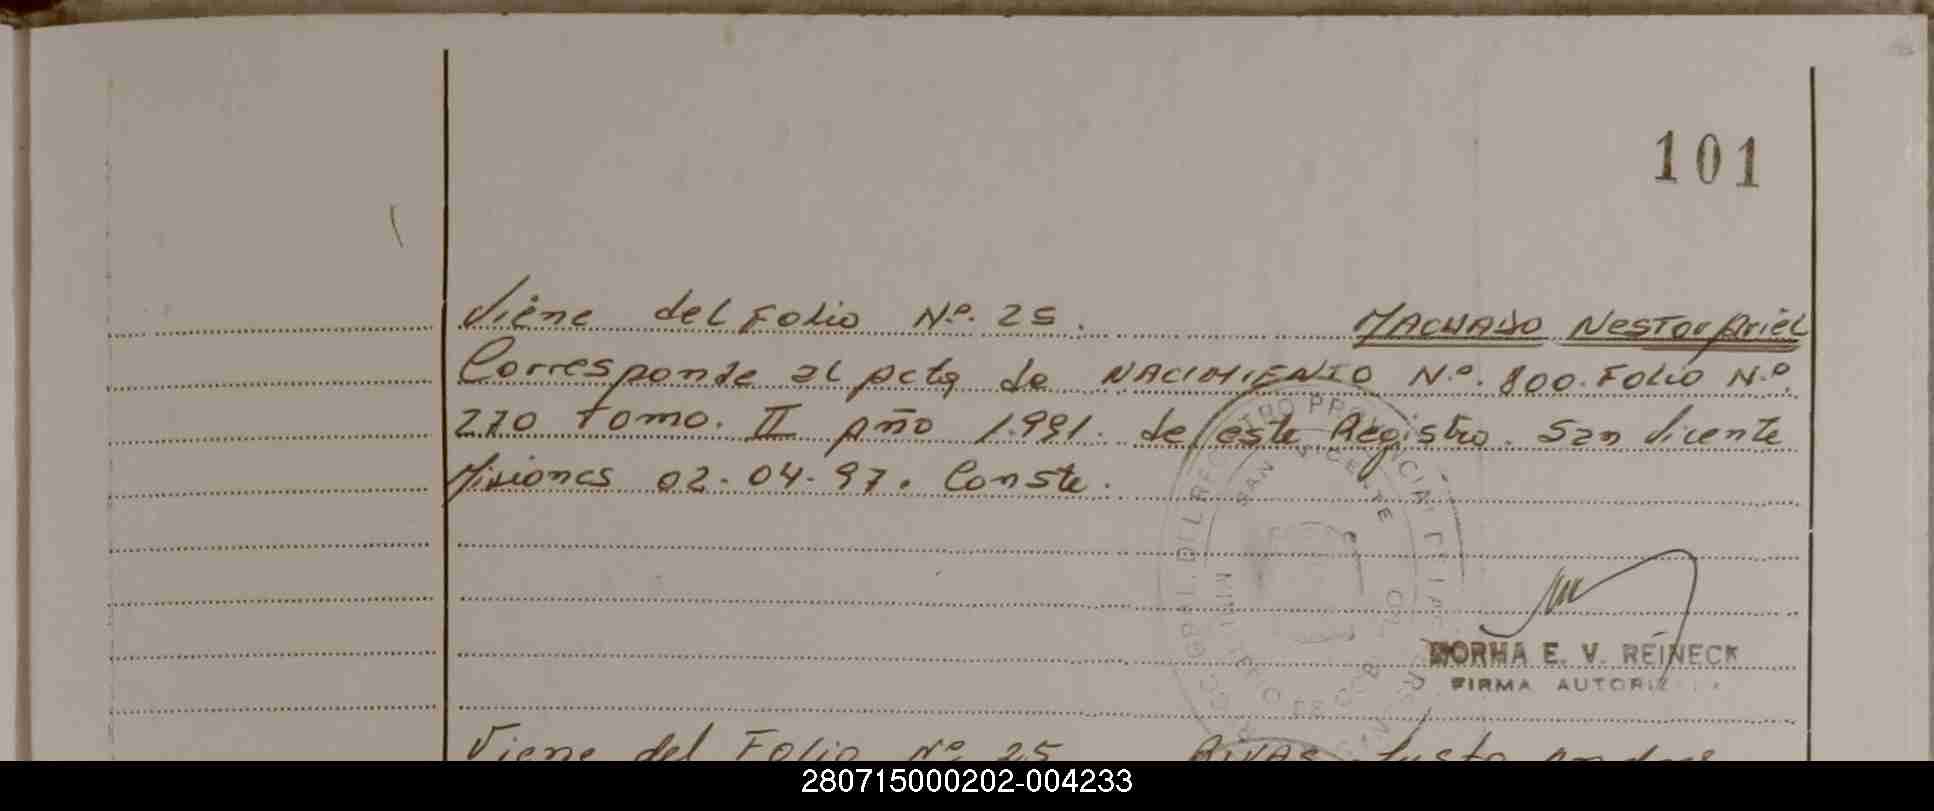 101
Viene del Folio Nº. 25. MACHADO Nestor Ariel
Corresponde al Acta de NACIMIENTO Nº. 800. Folio Nº.
270 Tomo. II Año 1.991. de este Registro. San Vicente
Misiones 02-04-97. Conste.
SAN VICENTE
NORMA E. V. REINECK
FIRMA AUTORIZ
Viene del Folio Nº 25 RIVAS Justo
280715000202-004233